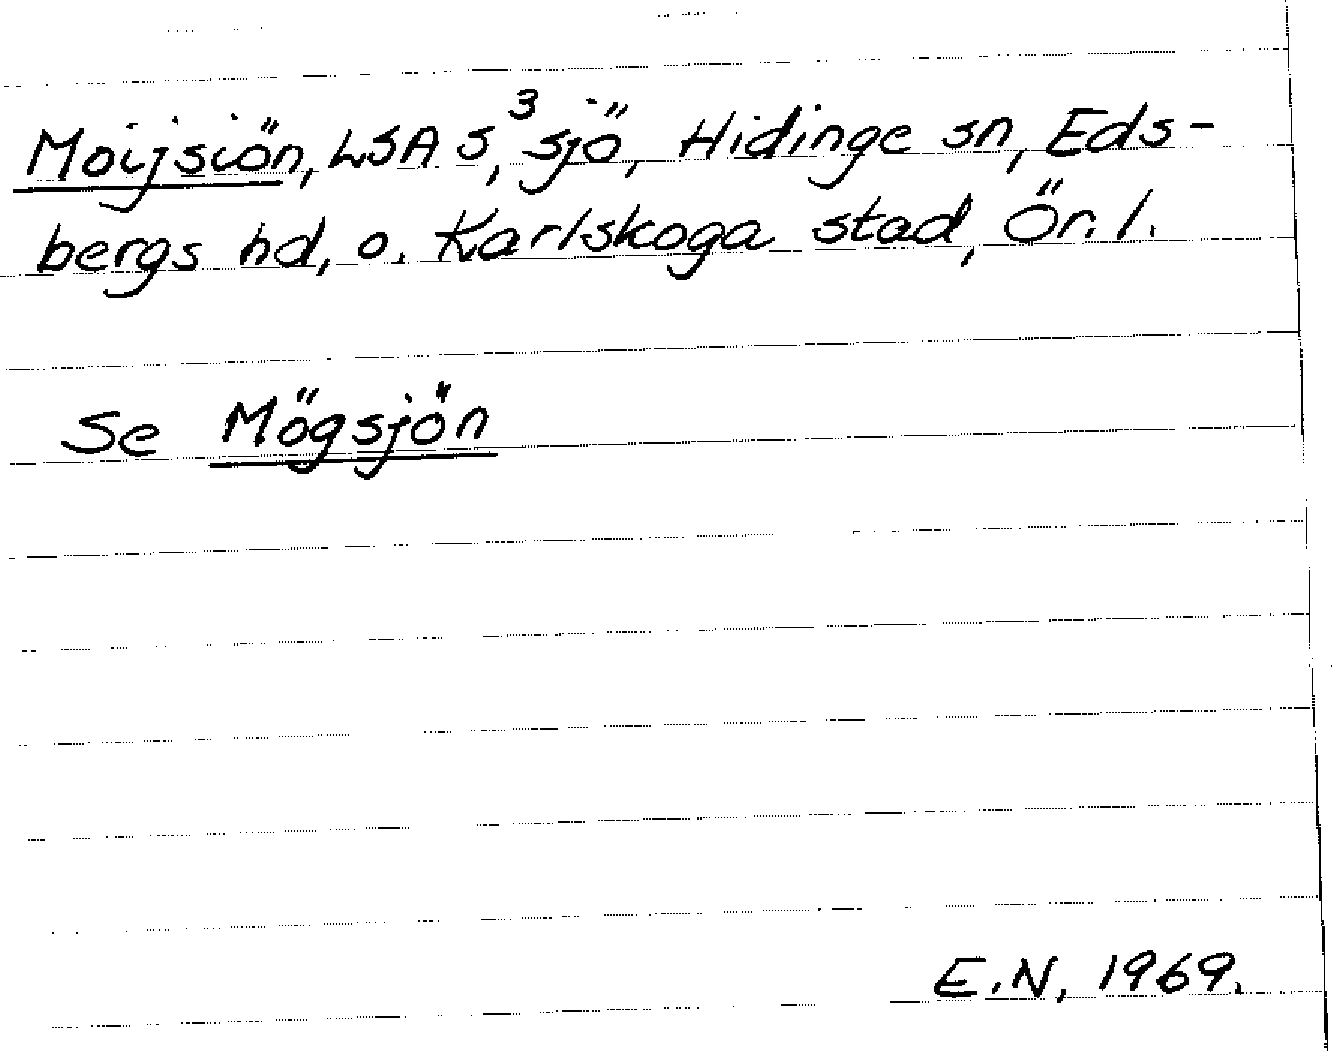 Moijsiön, LSA S,³ sjö, Hidinge sn, Eds-
bergs hd, o. Karlskoga stad, Ör. l.
Se Mögsjön
E.N. 1969.